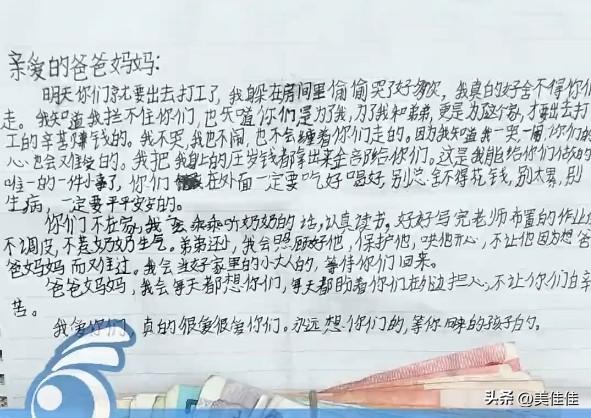 亲爱的爸爸妈妈:
明天你们就要出去打工了,我躲在房间里偷偷哭了好多次,我真的好舍不得你们
走。我知道我拦不住你们,也知道你们是为了我,为了我和弟弟,更是为这个家,才要出去打
工的辛苦赚钱的。我不哭,我也不闹,也不会缠着你们走的。因为我知道我一哭一闹你们的
心也会难受的。我把我的压岁钱都拿出来全部给你们。这是我能给你们做的
唯一的一件小事了,你们在外面一定要吃好喝好,别总舍不得花钱,别太累,别
生病,一定要平平安安的。
你们不在家,我会乖乖听奶奶的话,认真读书,好好写完老师布置的作业
不调皮,不惹奶奶生气。弟弟还小,我会照顾好他,保护他,哄他开心,不让他因为想爸
爸妈妈而难过。我会当好家里的小大人的,等待你们回来。
爸爸妈妈,我会每天都想你们,每天都盼着你们在外边担心,不让你们白辛
苦。
我爱你们,真的很爱很爱你们。永远想你们的,等你回来的孩子的。
头条@美佳佳